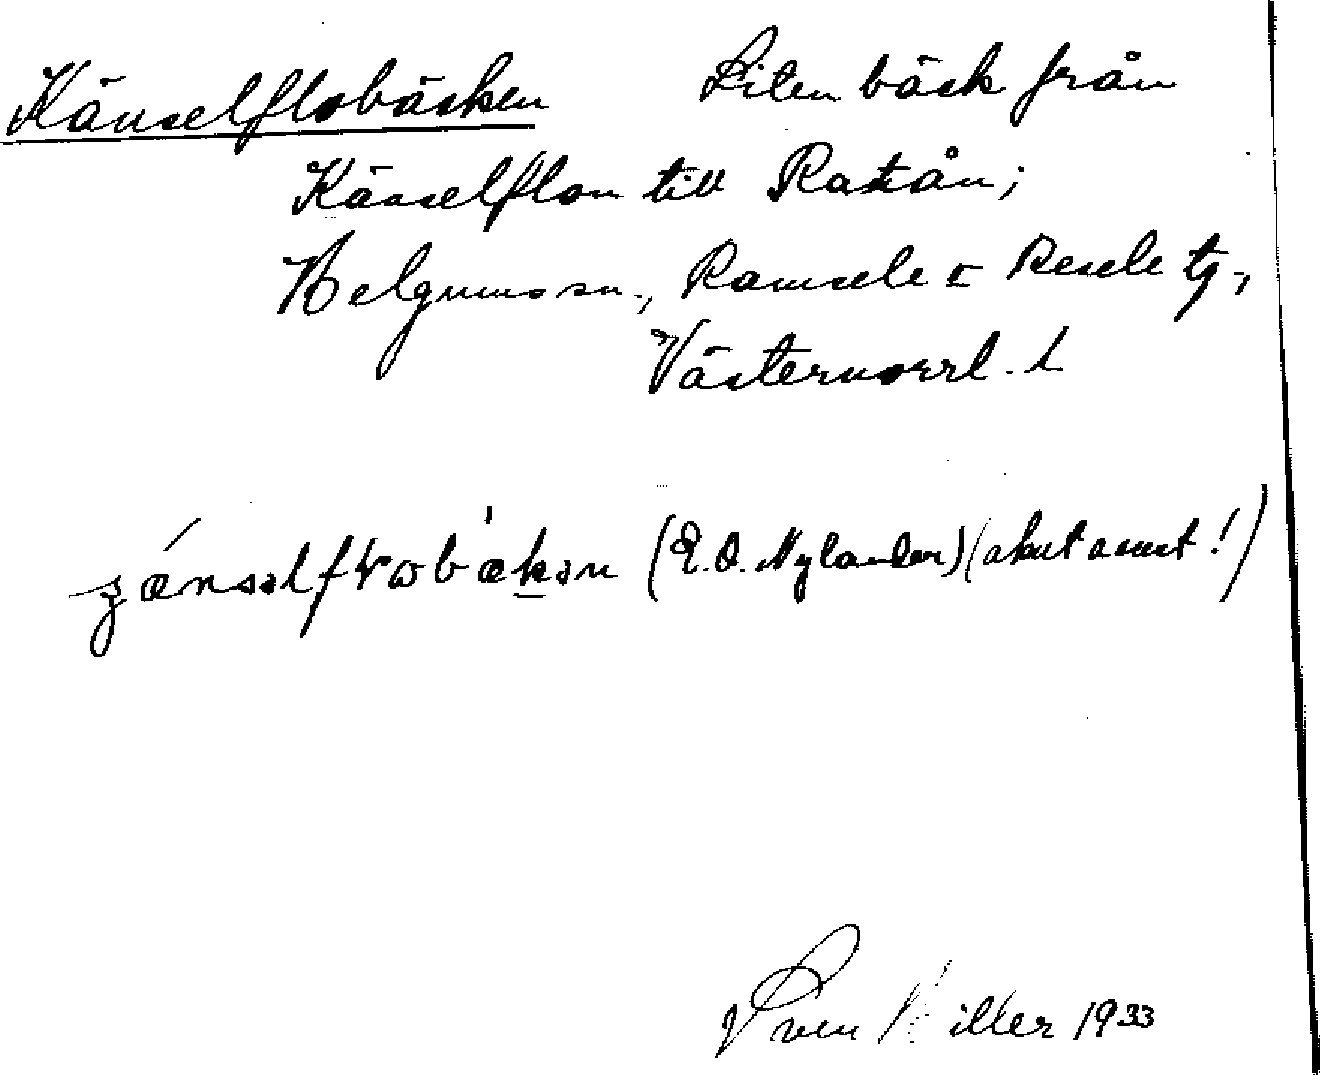 Känselflobäcken Liten bäck från
Känselflon till Ratån;
Helgums sn., Ramsele o Resele tg.,
Västernorrl. l
(E. O. Nylander) (akut accent!)
Sven 1933